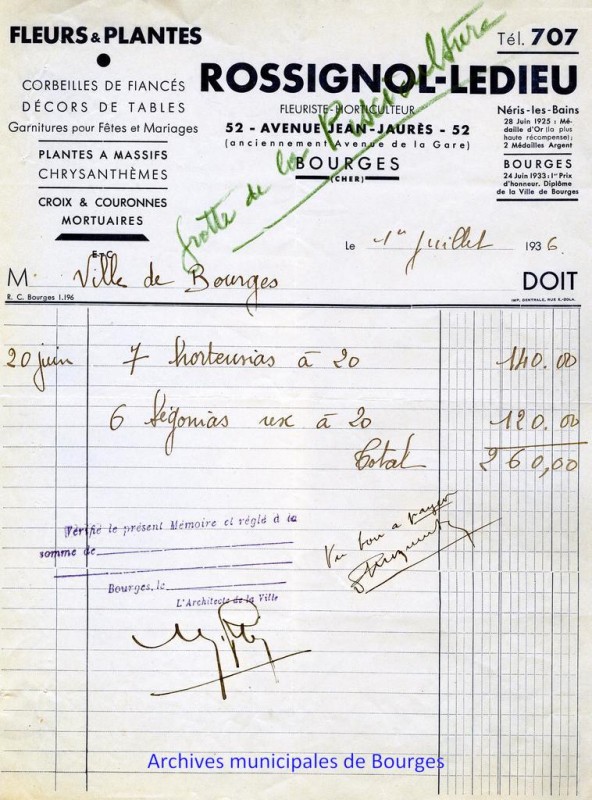 FLEURS & PLANTES
CORBEILLES DE FIANCÉS
DÉCORS DE TABLES
Garnitures pour Fêtes et Mariages
PLANTES A MASSIFS
CHRYSANTHÈMES
CROIX & COURONNES
MORTUAIRES
ETC
Tél. 707
ROSSIGNOL-LEDIEU
FLEURISTE-HORTICULTEUR
52 - AVENUE JEAN-JAURÈS - 52
(anciennement Avenue de la Gare)
BOURGES
(CHER)
Néris-les-Bains
28 Juin 1925 : Mé-
daille d'Or (la plus
haute récompense);
2 Médailles Argent
BOURGES
24 Juin 1933 : 1er Prix
d'honneur. Diplôme
de la Ville de Bourges
Grotte de la Pisciculture
Le 1er Juillet 1936.
M Ville de Bourges DOIT
R. C. Bourges 1.196
IMP. CENTRALE, RUE E.-ZOLA.
20 juin 7 hortensias à 20 140.00
6 Bégonias rex à 20 120.00
Total 260,00
Vérifié le présent Mémoire et réglé à la
somme de
Bourges, le
L'Architecte de la Ville
Vu bon a payer
Archives municipales de Bourges